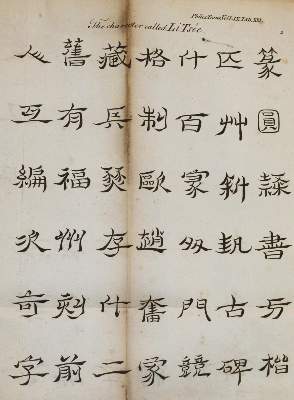 Philos. Trans. Vol. LIX. Tab. XXI.
The character called Li Tsée.
2
篆圓隸書方楷
艸斜古碑
什百家門競
格制歐趙奮家
藏兵燹存什二
舊有福州刻前
人互編次奇字